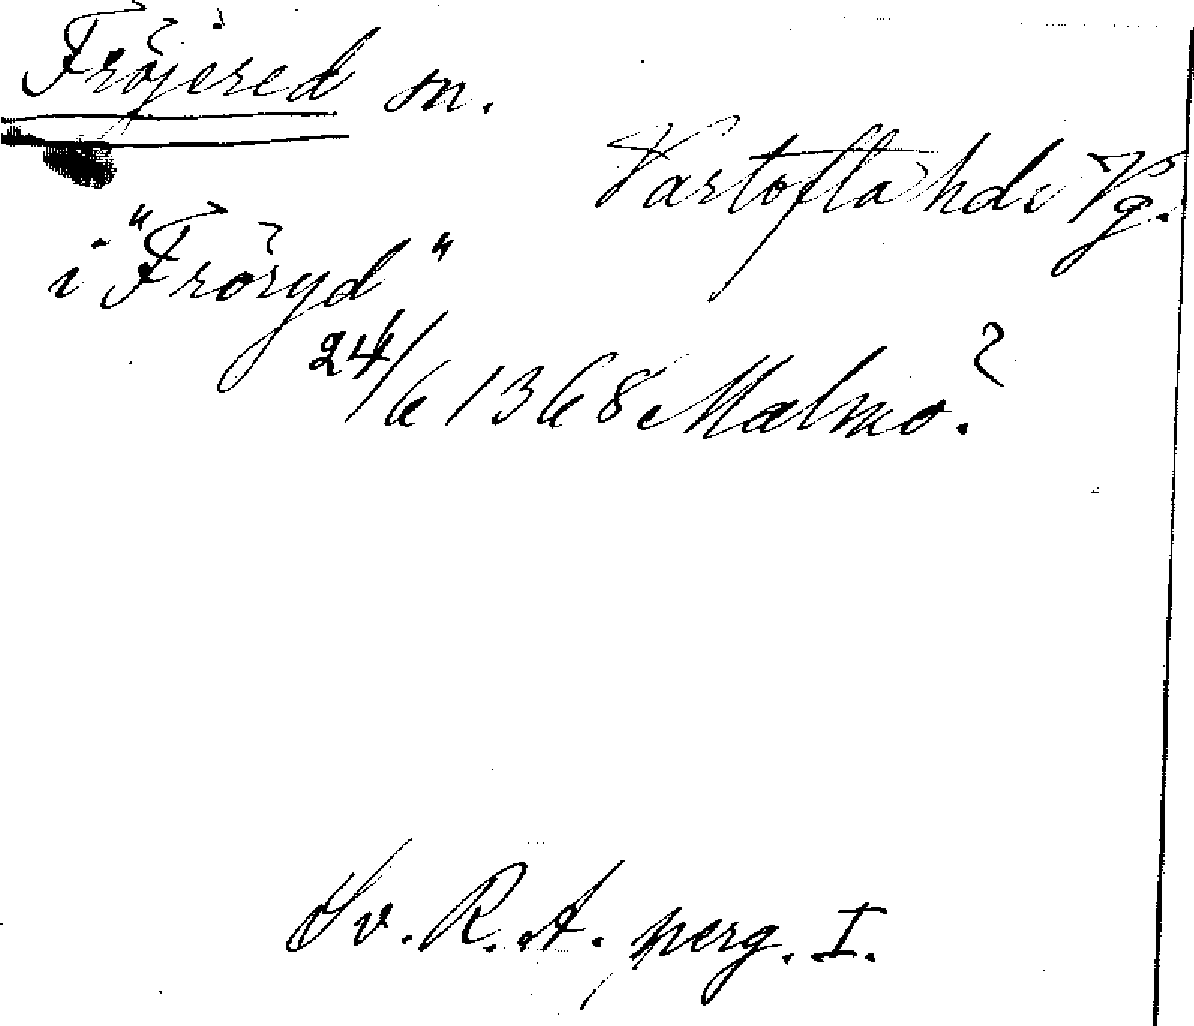 Fröjered sn.
Vartofta hdr Vg.
i "Fröryd"
24/6 1368 Malmö.
Sv. R. A. perg. I.